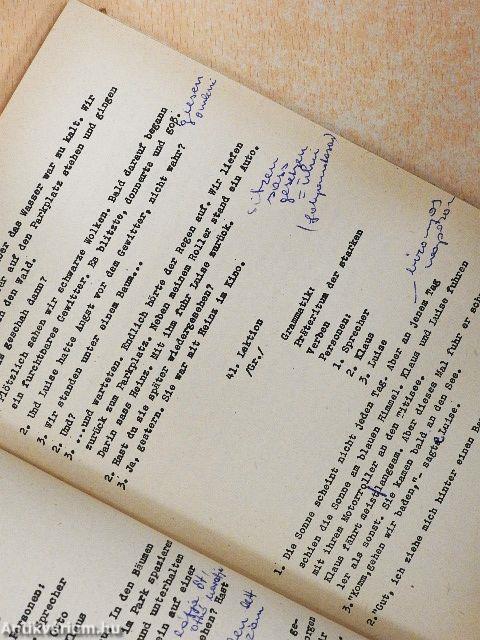 ber das Wasser war zu kalt. Wir
ir auf den Parkplatz stehen und gingen
n den Wald.
as geschah dann?
Plötzlich sahen wir schwarze Wolken. Bald darauf begann
ein furchtbares Gewitter. Es blitzte, donnerte und gog.
giesen
önteni
2. Und Luise hatte Angst vor dem Gewitter, nicht wahr?
3. Wir standen unter einem Baum...
2. Und?
3. ...und warteten. Endlich hörte der Regen auf. Wir liefen
zurück zum Parkplatz. Neben meinem Roller stand ein Auto.
Darin sass Heinz. Mit ihm fuhr Luise zurück.
2. Hast du sie später wiedergesehen?
3. Ja, gestern. Sie war mit Heinz im Kino.
sitzen
sass
gesetzen
= ülni
41. Lektion
/Gr./
Grammatik:
Präteritum der starken
Verben
Personen:
1. Sprecher
2. Klaus
3. Luise
bizonyos
napokon
1. Die Sonne scheint nicht jeden Tag. Aber an jenem Tag
schien die Sonne am blauen Himmel. Klaus und Luise fuhren
mit ihrem Motorroller an den Titisee.
Klaus fährt meist langsam. Aber dieses Mal fuhr er sch
ler als sonst. Sie kamen bald an den See.
3. "Komm, gehen wir baden," sagte Luise.
2. "Gut, ich ziehe mich hinter einen Ba
sonen:
precher
to
us
n den Bäumen
m Park spaziere
nd unterhalten
in auf einer
ehen? Hast
Antikvarium.hu